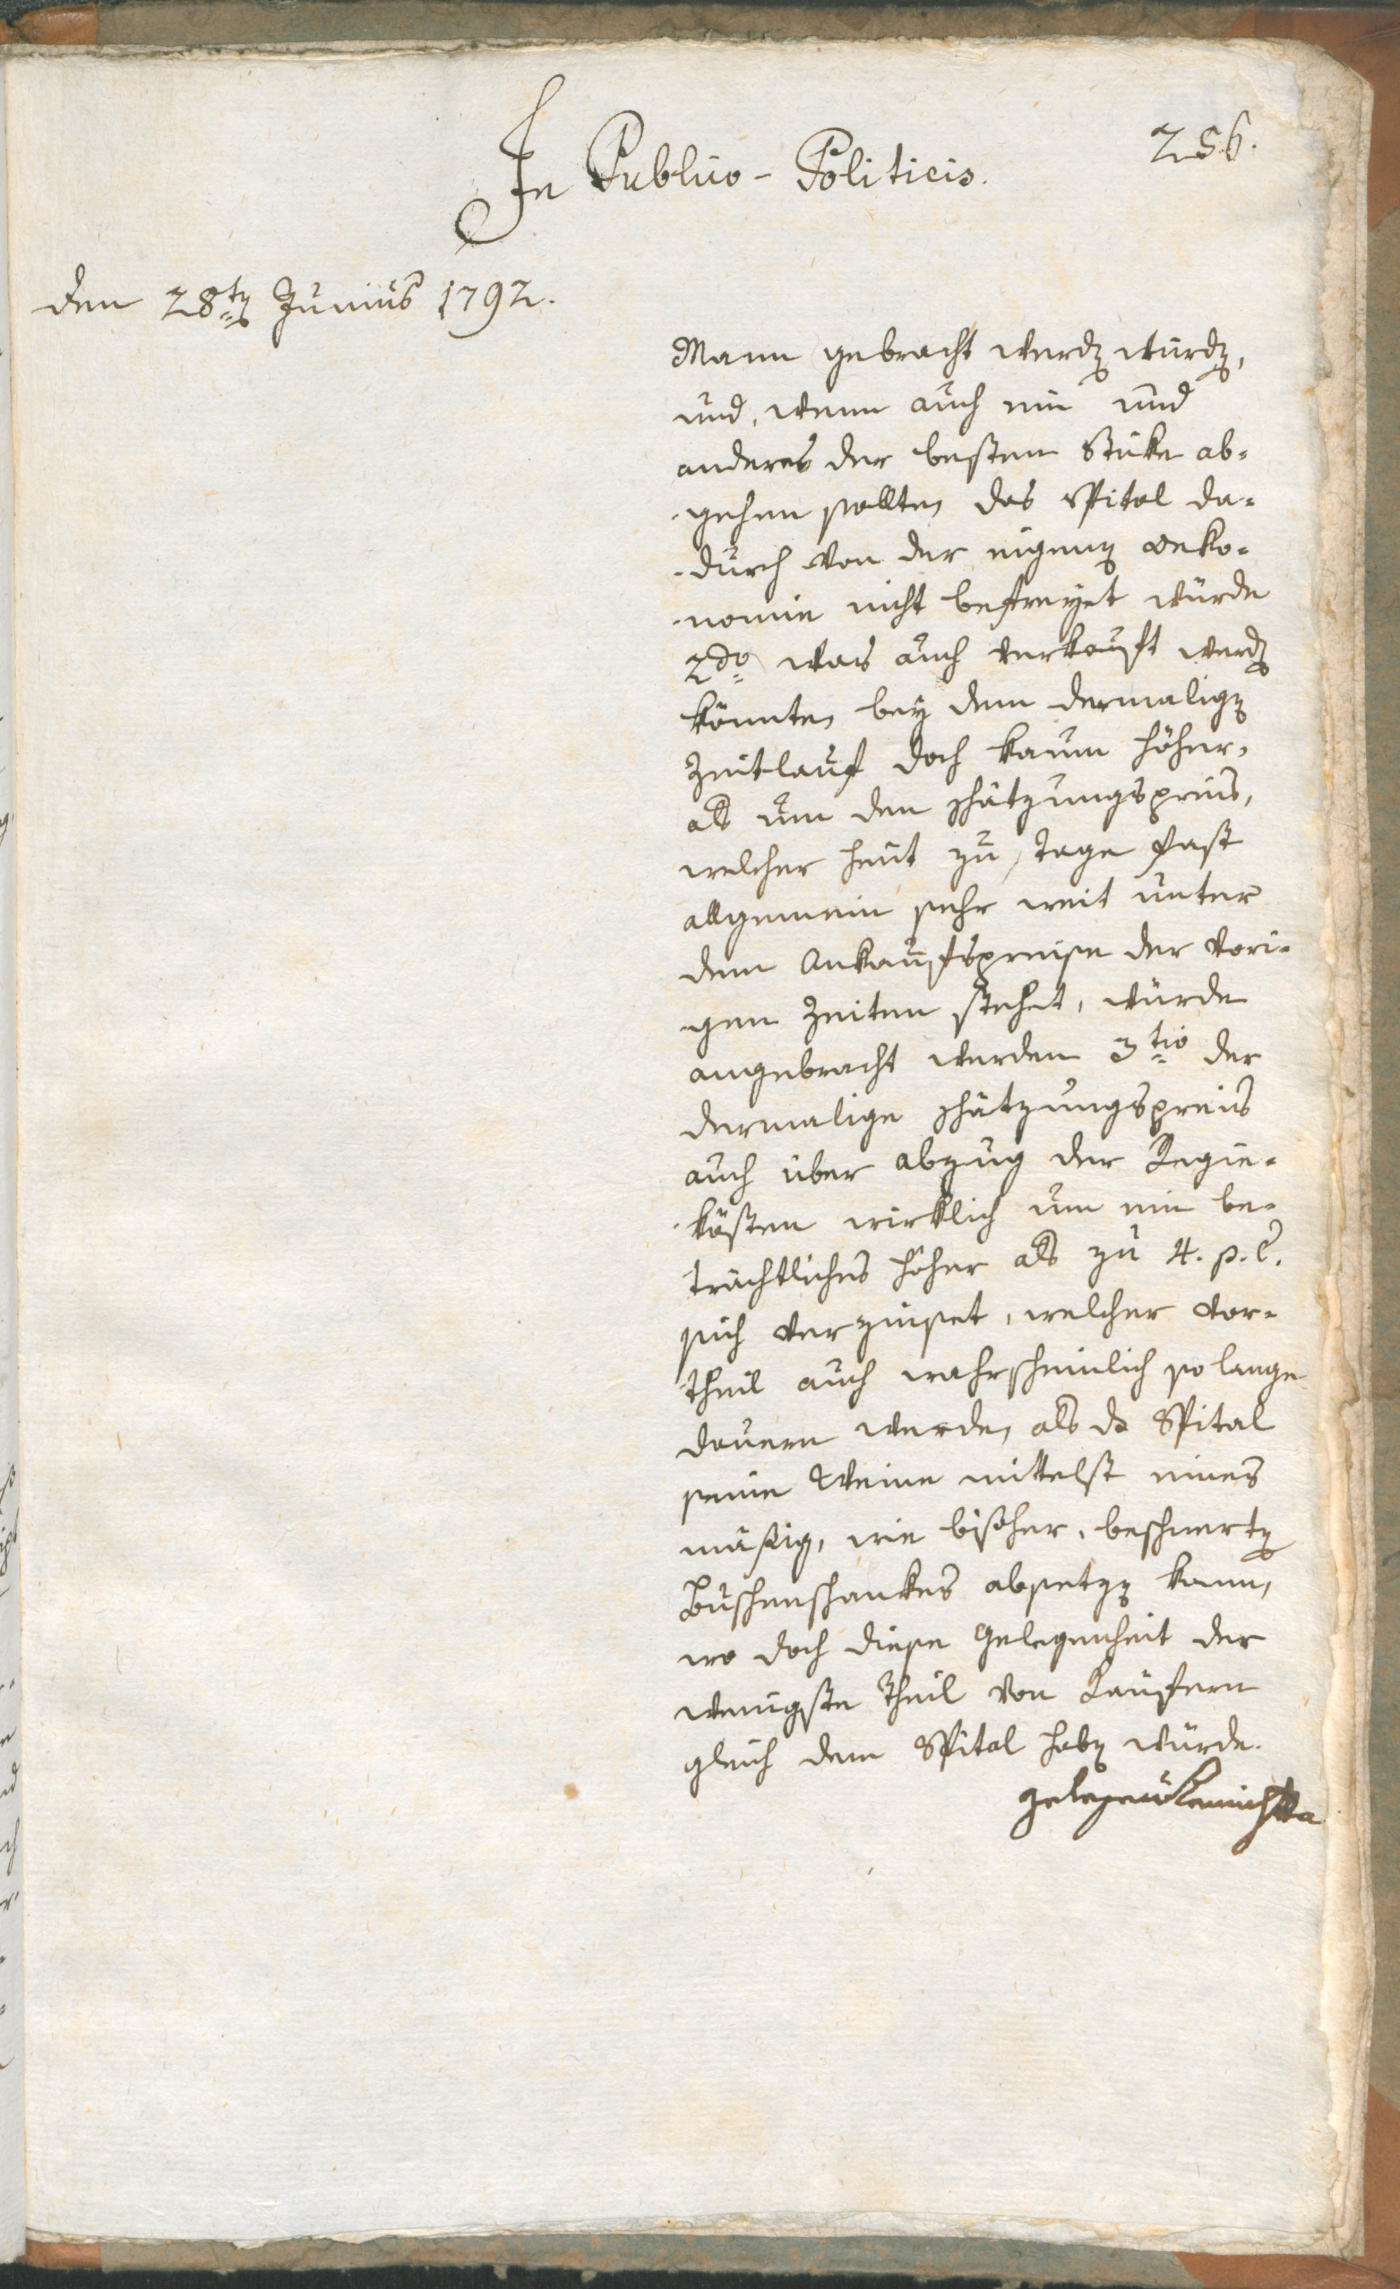 In Publico-Politicis.
256.
den 28ten Junius 1792.
Mann gebracht werden würden,
und, wenn auch ein und
anderes der besten Stüke ab-
gehen sollte, das Spital da-
durch von der eigenen Oeko-
nomie nicht befreyet würde
2do was auch verkauft werden
könnte, bey dem dermaligen
Zeitlauf doch kaum höher,
als um den Schätzungspreis,
welcher heut zu Tage fast
allgemein sehr weit unter
dem Ankaufspreise der vori-
gen Zeiten stehet, würde
angebracht werden 3tio der
dermalige Schätzungspreis
auch über abzug der Regie-
kösten wirklich um ein be-
trächtliches höher als zu 4. p. C.
sich verzinset, welcher Vor-
theil auch wahrscheinlich so lange
dauern werde, als das Spital
seine Weine mittelst eines
mäßig, wie bißher, beschwerten
Buschenschankes absetzen kann,
wo doch diese Gelegenheit der
wenigste Theil von Käufern
gleich dem Spital haben würde.